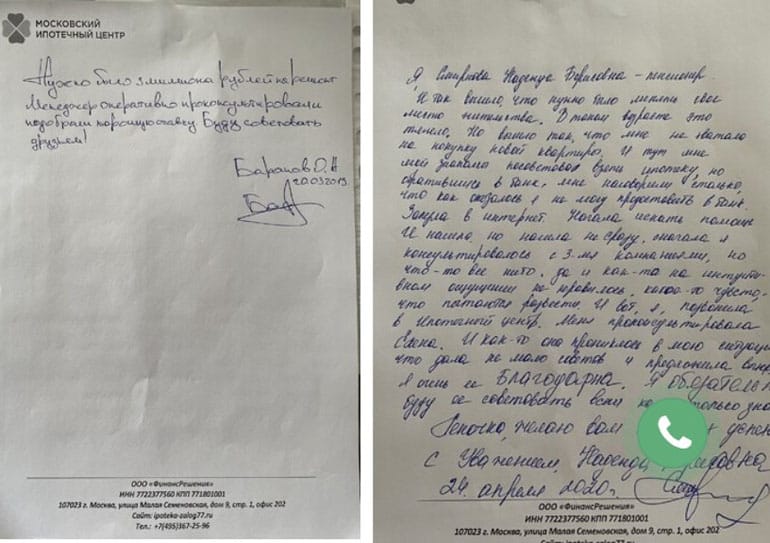 МОСКОВСКИЙ
ИПОТЕЧНЫЙ ЦЕНТР
Нужно было 3 миллиона рублей на ремонт
Менеджер оперативно проконсультировали
подобрали хорошую ставку Буду советовать
друзьям!
Баранов О.Н
20.03.2019.
ООО «ФинансРешения»
ИНН 7722377560 КПП 771801001
107023 г. Москва, улица Малая Семеновская, дом 9, стр. 1, офис 202
Сайт: ipoteka-zalog77.ru
Тел.: +7(495)367-25-96
Я Смирнова Надежда Борисовна - пенсионер.
И так вышло, что нужно было менять свое
место жительства. В таком возрасте это
тяжело. Но вышло так, что мне не хватало
на покупку новой квартиры. И тут мне
моя знакомая посоветовала взять ипотеку, но
обратившись в банк, мне наговорили столько,
что как оказалось я не могу предоставить в банк.
Зашла в интернет. Начала искать помощи
И нашла, но нашла не сразу, сначала я
консультировалась с 3-мя компаниями, но
что-то все не то, да и как-то на интуити-
вном ощущении не нравилось, какое-то чувство,
что пытаются развести. И вот, я, позвонила
в Ипотечный центр. Меня проконсультировала
Елена. И как-то она прониклась в мою ситуаци
что дала не мало советов и предложила
я очень ее Благодарна. Я обязательн
буду ее советовать всем только зна
Леночка, желаю вам успех
С Уважением, Надежда Борисовна
24 апреля 2020г.
ООО «ФинансРешения»
ИНН 7722377560 КПП 771801001
107023 г. Москва, улица Малая Семеновская, дом 9, стр. 1, офис 202